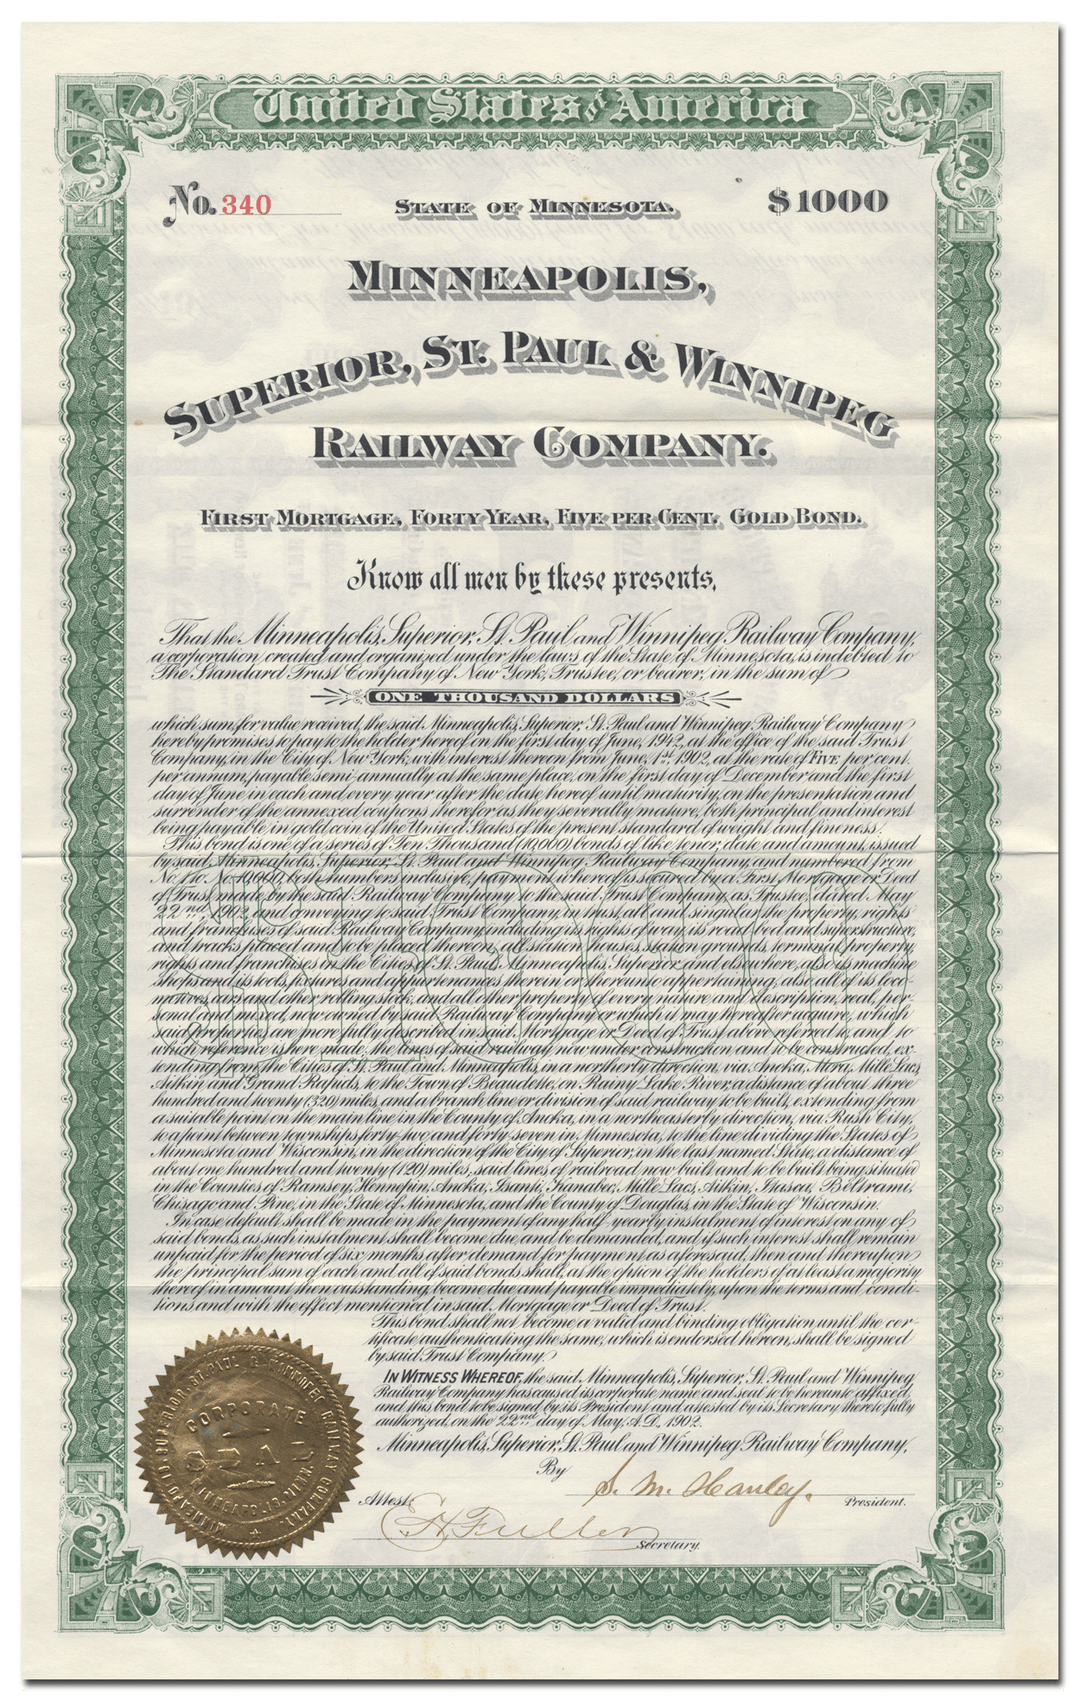 United States of America
No. 340
STATE OF MINNESOTA.
$1000
MINNEAPOLIS,
SUPERIOR, ST. PAUL & WINNIPEG
RAILWAY COMPANY.
FIRST MORTGAGE, FORTY YEAR, FIVE PER CENT. GOLD BOND.
Know all men by these presents,
That the Minneapolis, Superior, St. Paul and Winnipeg Railway Company,
a corporation created and organized under the laws of the State of Minnesota, is indebted to
The Standard Trust Company of New York, Trustee, or bearer, in the sum of
ONE THOUSAND DOLLARS
which sum, for value received, the said Minneapolis, Superior, St. Paul and Winnipeg Railway Company
hereby promises to pay to the holder hereof on the first day of June, 1942, at the office of the said Trust
Company, in the City of New York, with interest thereon from June, 1st, 1902, at the rate of FIVE per cent.
per annum, payable semi-annually at the same place, on the first day of December and the first
day of June in each and every year after the date hereof until maturity, on the presentation and
surrender of the annexed coupons therefor as they severally mature, both principal and interest
being payable in gold coin of the United States of the present standard of weight and fineness.
This bond is one of a series of Ten Thousand (10,000) bonds of like tenor, date and amount, issued
by said, Minneapolis, Superior, St. Paul and Winnipeg Railway Company, and numbered from
No. 1 to No. 10,000, both numbers inclusive, payment whereof is secured by a First Mortgage or Deed
of Trust, made by the said Railway Company to the said Trust Company, as Trustee, dated May
22nd, 1902, and conveying to said Trust Company, in trust, all and singular the property, rights
and franchises of said Railway Company, including its rights of way, its road bed and superstructure,
and tracks placed and to be placed thereon, all station houses, station grounds, terminal property,
rights and franchises in the Cities of St. Paul, Minneapolis, Superior, and elsewhere, also its machine
shops and its tools, fixtures and appurtenances therein or thereunto appertaining, also, all of its loco-
motives, cars and other rolling stock, and all other property of every nature and description, real, per-
sonal and mixed, now owned by said Railway Company or which it may hereafter acquire, which
said properties are more fully described in said Mortgage or Deed of Trust above referred to, and to
which reference is here made, the lines of said railway, now under construction and to be constructed, ex-
tending from the Cities of St. Paul and Minneapolis, in a northerly direction, via Anoka, Mora, Mille Lacs,
Aitkin and Grand Rapids, to the Town of Beaudette, on Rainy Lake River, a distance of about three
hundred and twenty (320) miles, and a branch line or division of said railway to be built, extending from
a suitable point on the main line in the County of Anoka, in a northeasterly direction, via Rush City,
to a point between townships forty-two and forty-seven in Minnesota, to the line dividing the States of
Minnesota and Wisconsin, in the direction of the City of Superior, in the last named State, a distance of
about one hundred and twenty (120) miles, said lines of railroad now built and to be built being situated
in the Counties of Ramsey, Hennepin, Anoka, Isanti, Kanabec, Mille Lacs, Aitkin, Itasca, Beltrami,
Chisago and Pine, in the State of Minnesota, and the County of Douglas, in the State of Wisconsin.
In case default shall be made in the payment of any half-yearly instalment of interest on any of
said bonds, as such instalment shall become due, and be demanded, and if such interest shall remain
unpaid for the period of six months after demand for payment as aforesaid, then and thereupon
the principal sum of each and all of said bonds shall, at the option of the holders of at least a majority
thereof in amount then outstanding, become due and payable immediately, upon the terms and condi-
tions and with the effect mentioned in said Mortgage or Deed of Trust.
This bond shall not become a valid and binding obligation until the cer-
tificate authenticating the same, which is endorsed hereon, shall be signed
by said Trust Company.
IN WITNESS WHEREOF, the said Minneapolis, Superior, St. Paul and Winnipeg
Railway Company has caused its corporate name and seal to be hereunto affixed,
and this bond to be signed by its President and attested by its Secretary thereto fully
authorized, on the 22nd day of May, A.D. 1902.
Minneapolis, Superior, St. Paul and Winnipeg Railway Company,
By S. M. Hanley. President.
Attest:
E H Fuller Secretary.
MINNEAPOLIS, SUPERIOR, ST. PAUL & WINNIPEG RAILWAY COMPANY.
CORPORATE
SEAL
MINNEAPOLIS, MINN.